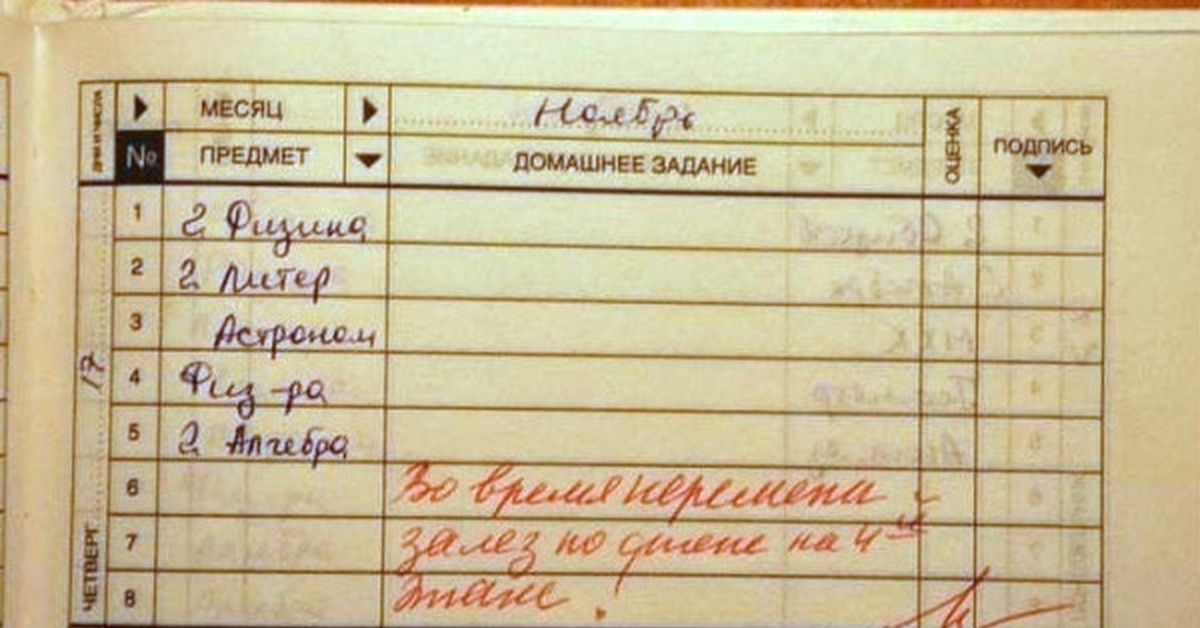 ДНИ И ЧИСЛА
МЕСЯЦ Ноябрь
№ ПРЕДМЕТ ДОМАШНЕЕ ЗАДАНИЕ ОЦЕНКА ПОДПИСЬ
1 2 Физика
2 2 Литер
3 Астроном
4 Физ-ра
5 2 Алгебра
6 Во время перемены
7 залез по стене на 4ый
8 этаж!
ЧЕТВЕРГ 17